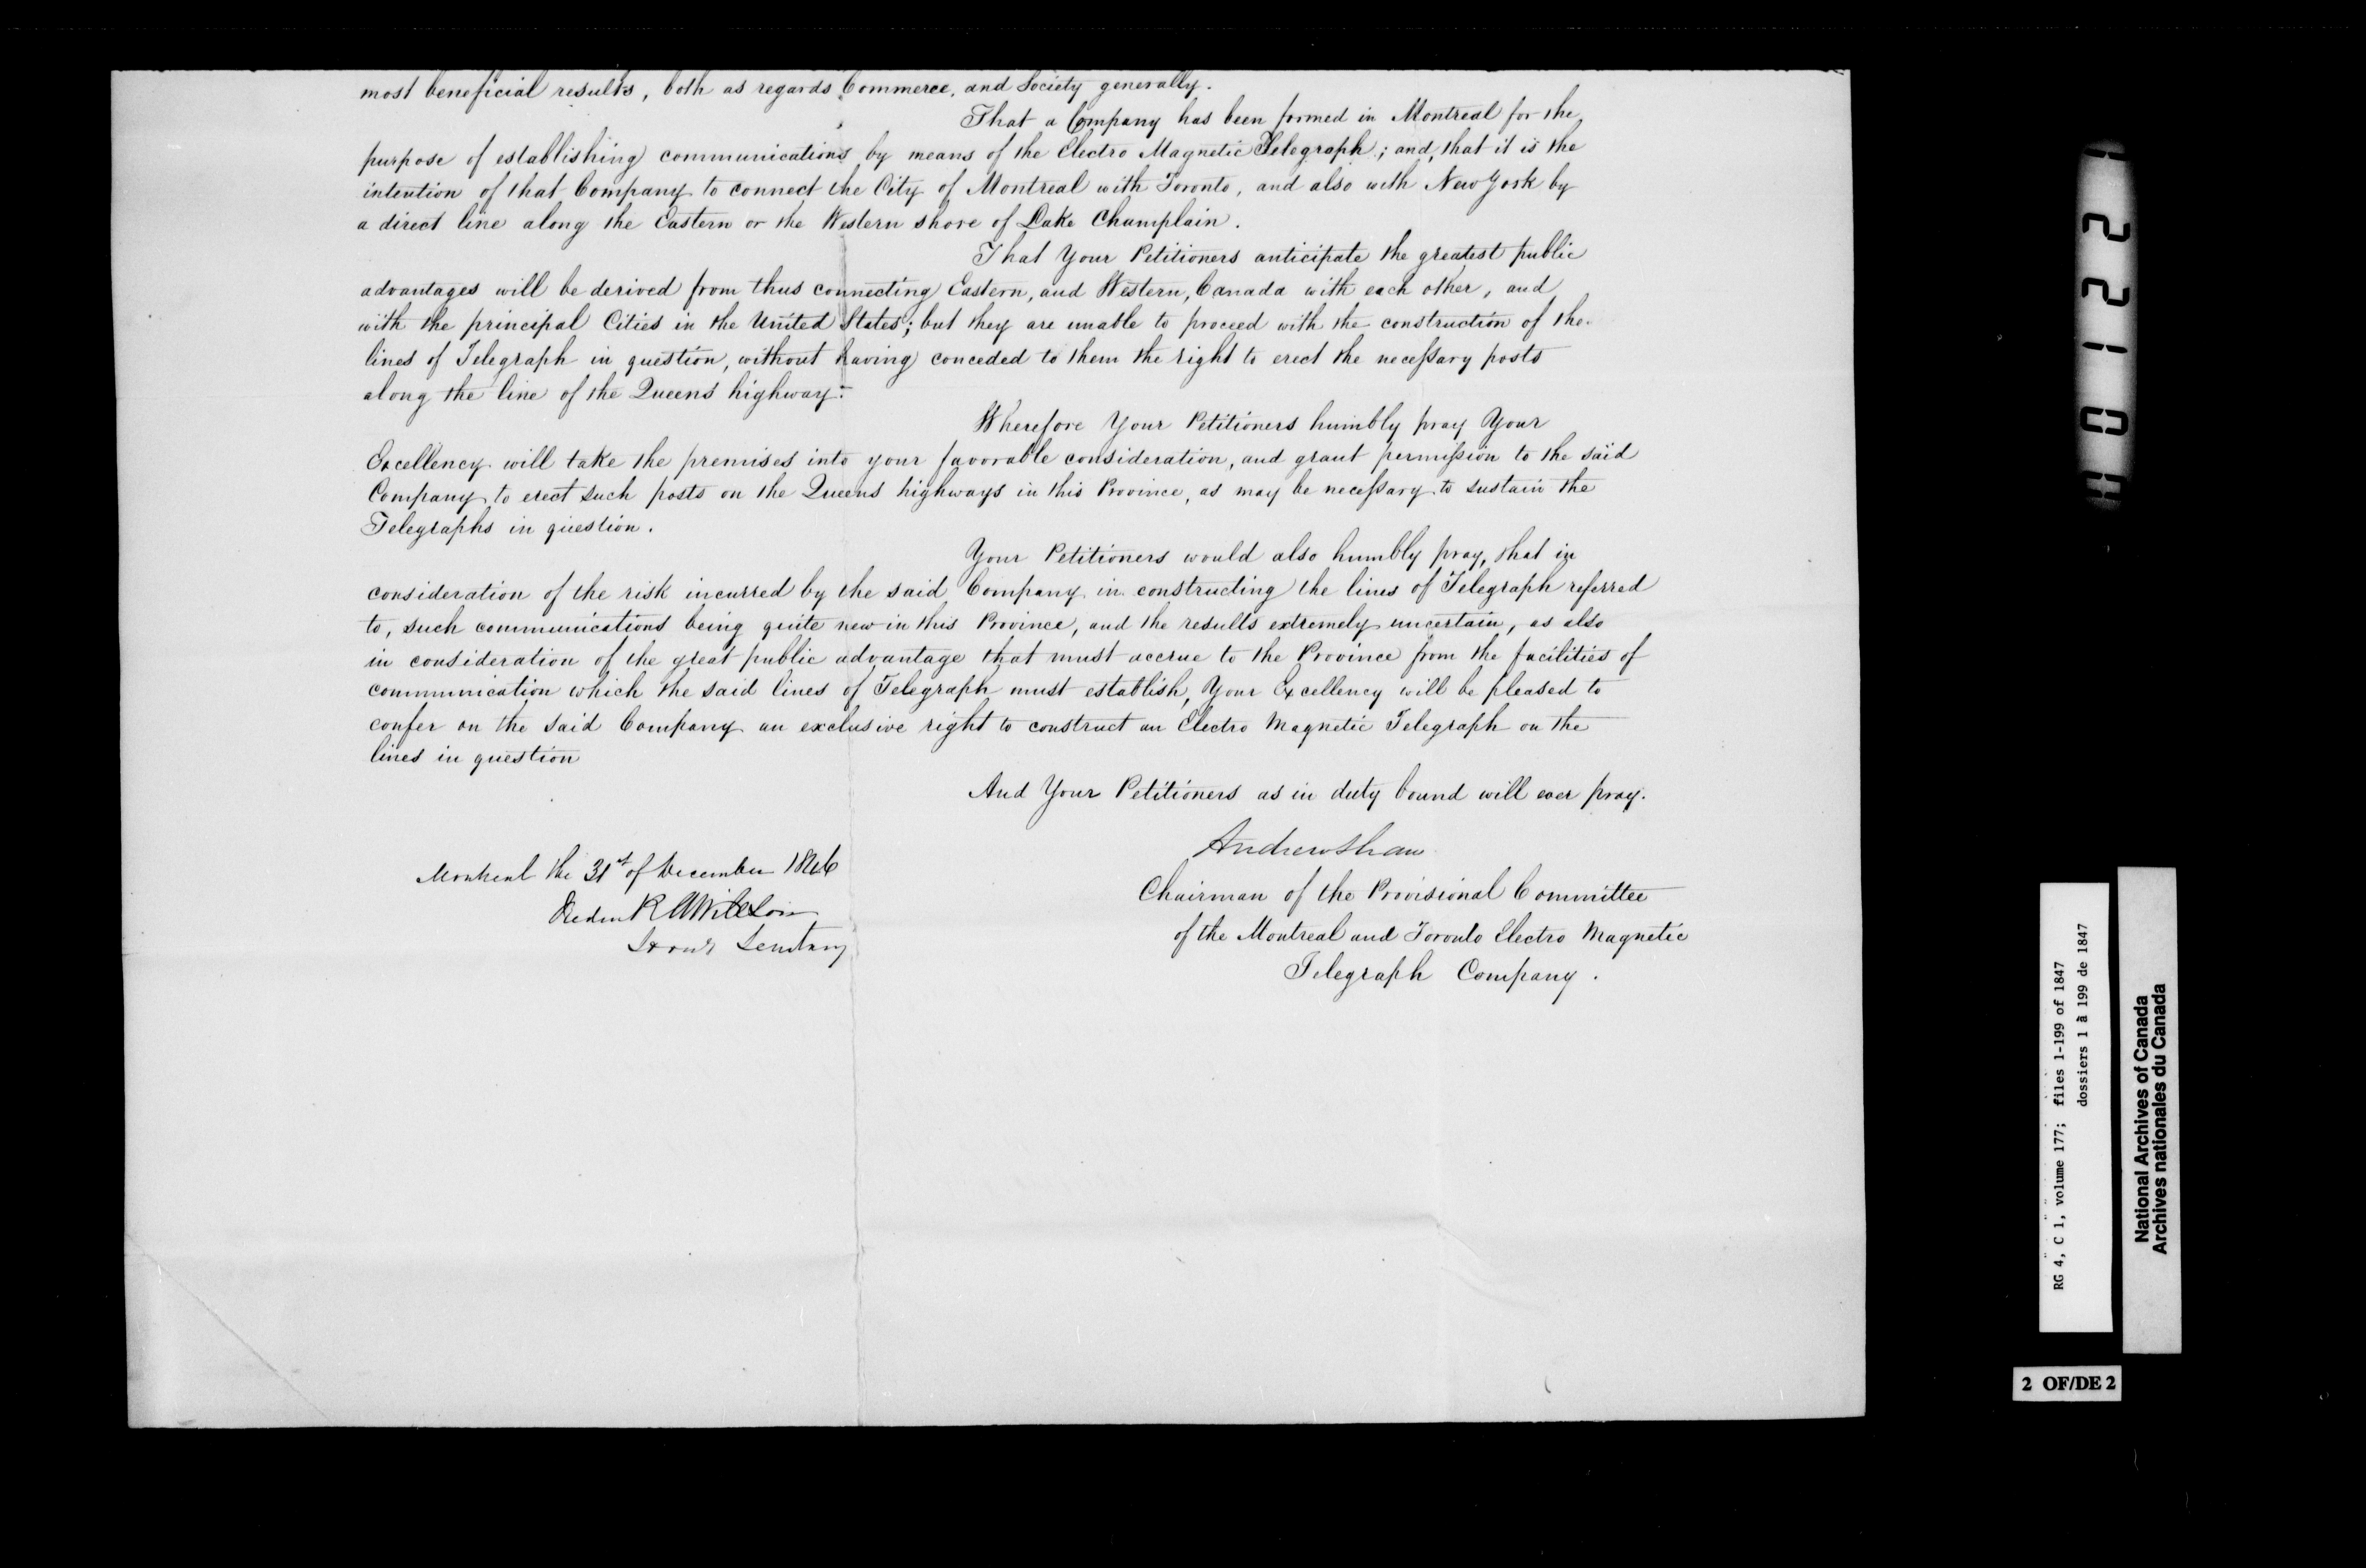 most beneficial results, both as regards Commerce, and Society generally.
That a Company has been formed in Montreal for the
purpose of establishing communications by means of the Electro Magnetic Telegraph; and, that it is the
intention of that Company to connect the City of Montreal with Toronto, and also with New York by
a direct line along the Eastern or the Western shore of Lake Champlain.
That Your Petitioners anticipate the greatest public
advantages will be derived from thus connecting Eastern, and Western, Canada with each other, and
with the principal Cities in the United States; but they are unable to proceed with the construction of the
lines of Telegraph in question, without having conceded to them the right to erect the necessary posts
along the line of the Queens highway.
Wherefore Your Petitioners humbly pray Your
Excellency will take the premises into your favorable consideration, and grant permission to the said
Company to erect such posts on the Queens highways in this Province, as may be necessary to sustain the
Telegraphs in question.
Your Petitioners would also humbly pray, that in
consideration of the risk incurred by the said Company in constructing the lines of Telegraph referred
to, such communications being quite new in this Province, and the results extremely uncertain, as also
in consideration of the great public advantage that must accrue to the Province from the facilities of
communication which the said lines of Telegraph must establish, Your Excellency will be pleased to
confer on the said Company an exclusive right to construct an Electro Magnetic Telegraph on the
lines in question
And Your Petitioners as in duty bound will ever pray.
Andrew Shaw
Chairman of the Provisional Committee
of the Montreal and Toronto Electro Magnetic
Telegraph Company.
Montreal the 31st of December 1846
Secretary
H01221
RG 4, C 1, volume 177; files 1-199 of 1847
dossiers 1 à 199 de 1847
National Archives of Canada
Archives nationales du Canada
2 OF/DE 2